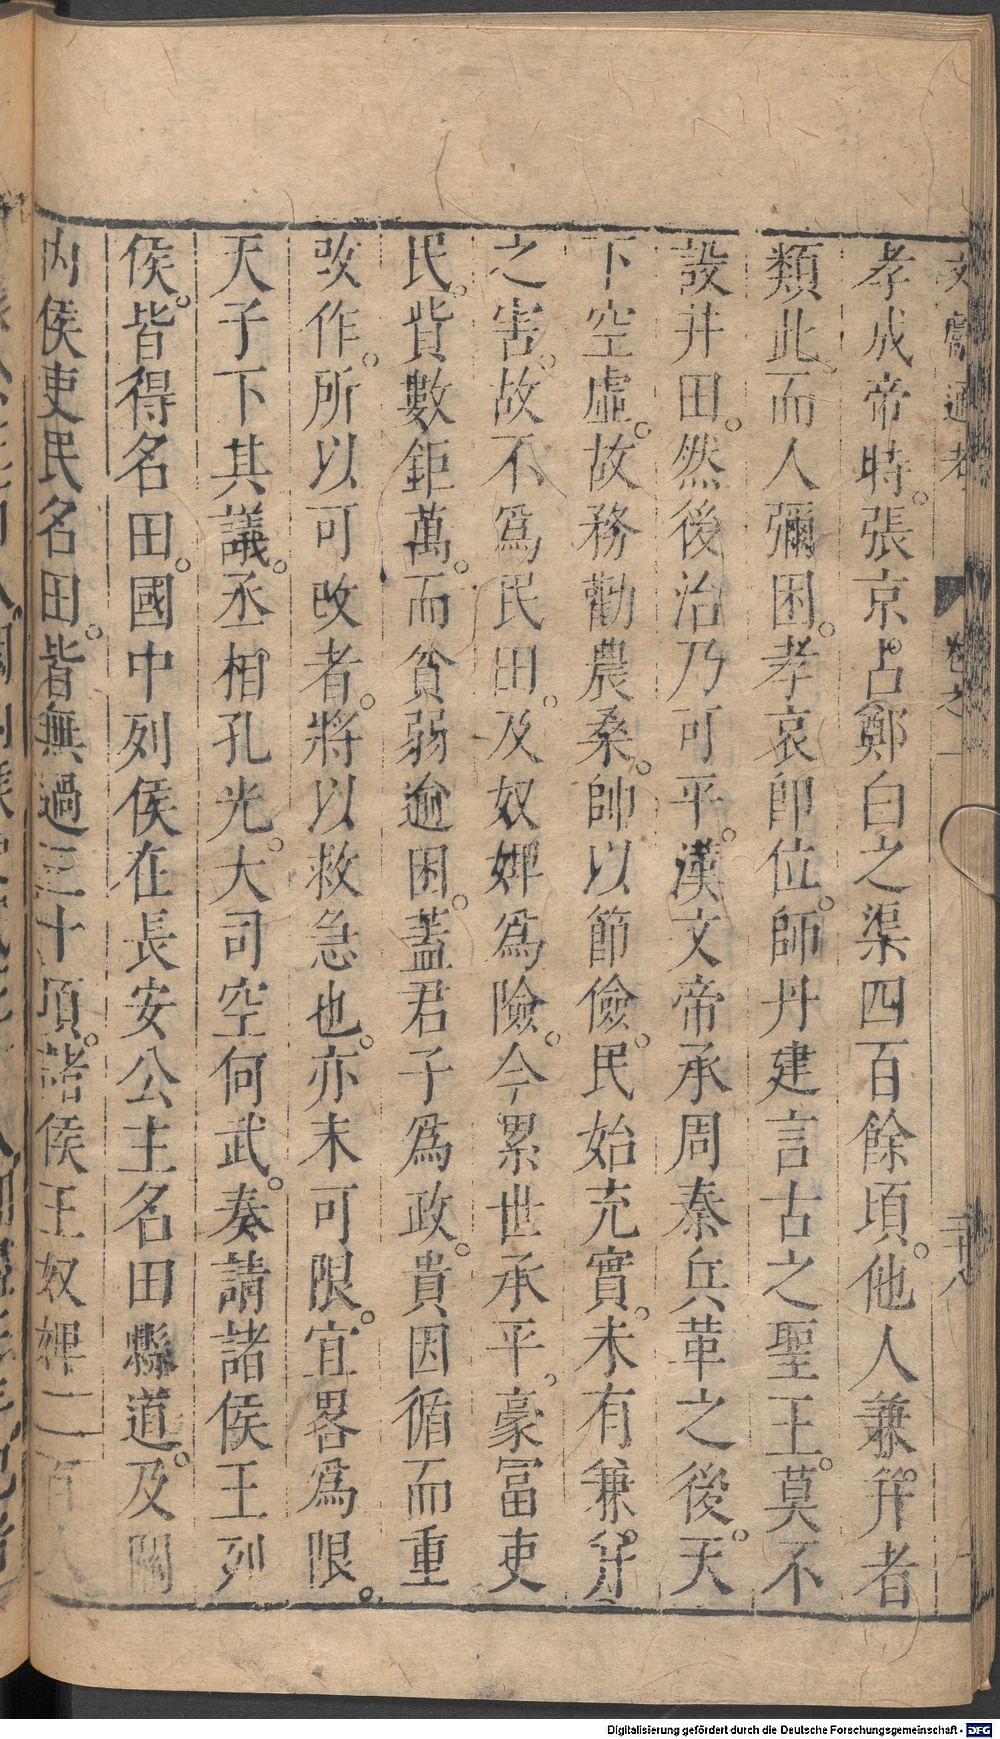 文獻通考　卷之一　二十八
孝成帝時。張京占鄭白之渠四百餘頃。他人兼并者
類此。而人彌困。孝哀卽位。師丹建言古之聖王。莫不
設井田。然後治乃可平。漢文帝承周秦兵革之後。天
下空虛。故務勸農桑。帥以節儉。民始充實。未有兼并
之害。故不爲民田。及奴婢爲險。今累世承平。豪冨吏
民。貲數鉅萬。而貧弱逾困。蓋君子爲政。貴因循而重
改作。所以可改者。將以救急也。亦未可限。宜畧爲限。
天子下其議。丞相孔光。大司空何武。奏請諸侯王列
侯。皆得名田。國中列侯在長安公主名田縣道。及關
内侯吏民名田。皆無過三十頃。諸侯王奴婢二百人
Digitalisierung gefördert durch die Deutsche Forschungsgemeinschaft - DFG